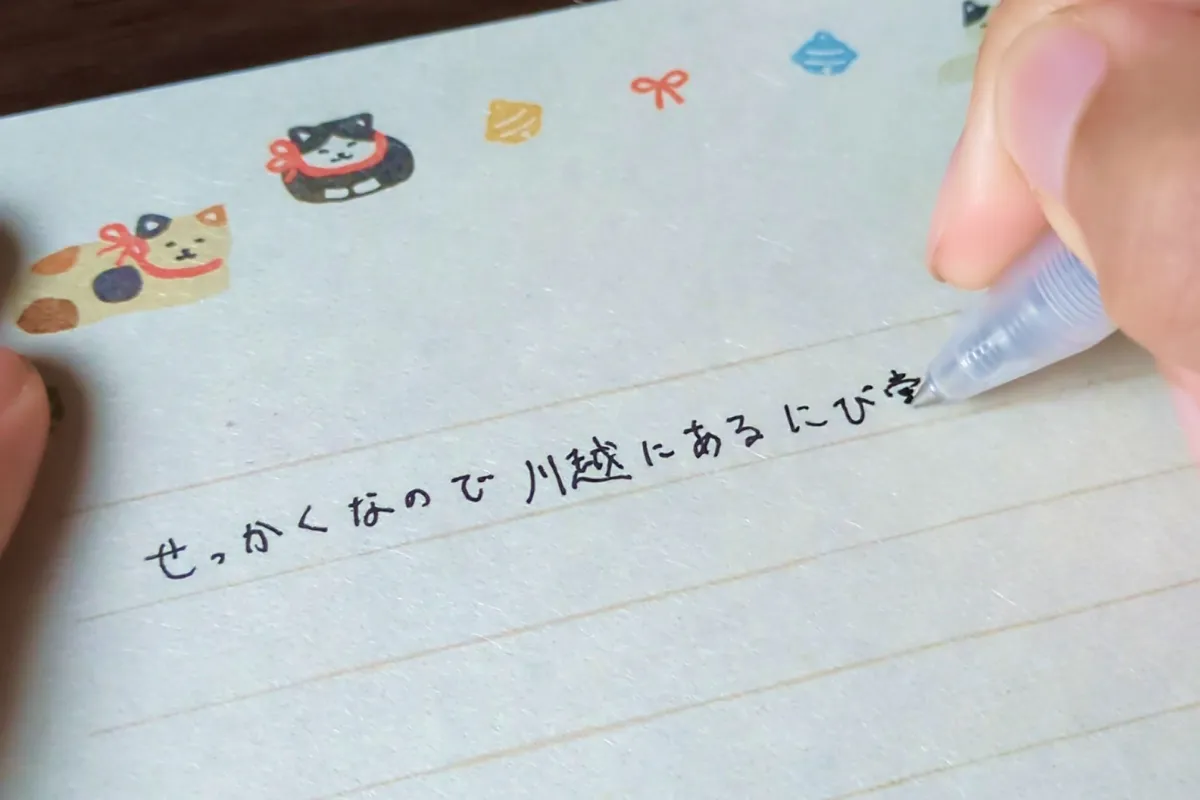 せっかくなので川越にあるにび堂